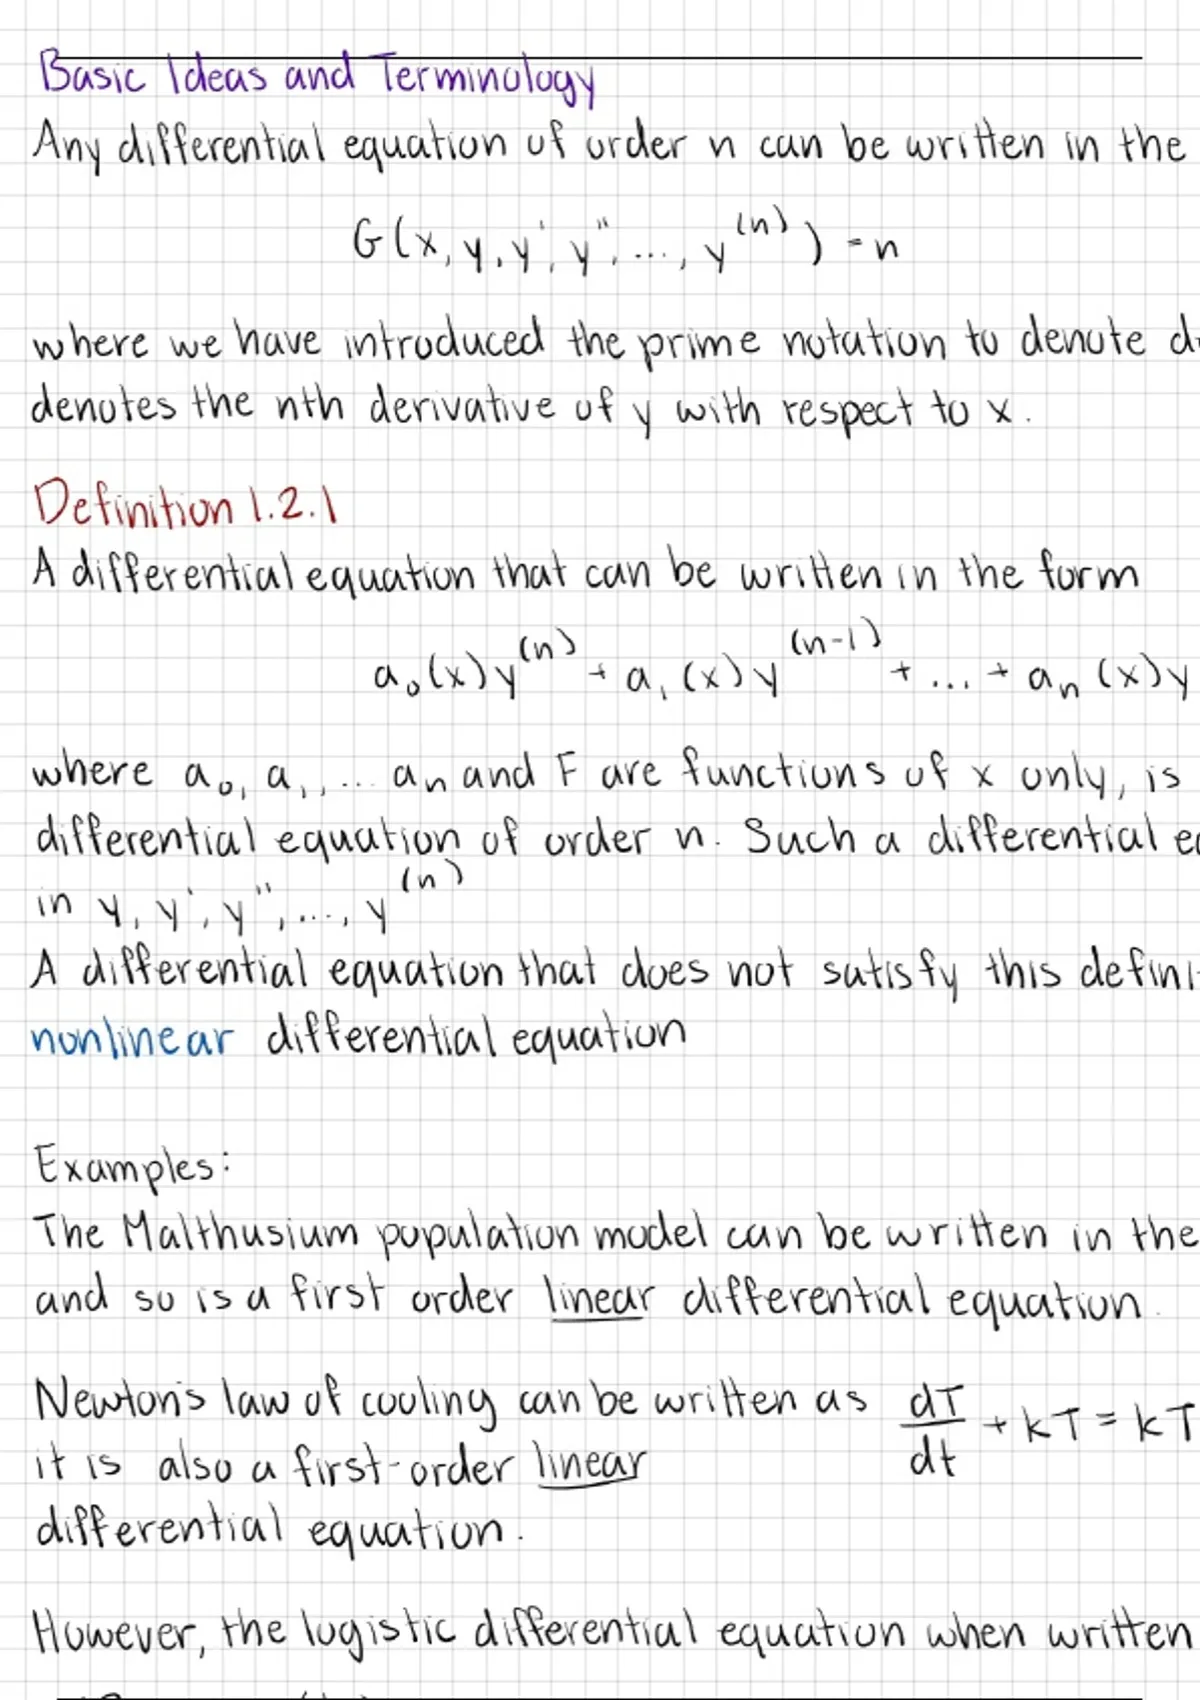 Basic Ideas and Terminology
Any differential equation of order n can be written in the
G(x, y, y', y'', ..., y^(n)) = n
where we have introduced the prime notation to denote
denotes the nth derivative of y with respect to x.
Definition 1.2.1
A differential equation that can be written in the form
a₀(x)y^(n) + a₁(x)y^(n-1) + ... + aₙ(x)y
where a₀, a₁, ... aₙ and F are functions of x only, is
differential equation of order n. Such a differential
in y, y', y'', ..., y^(n)
A differential equation that does not satisfy this defini
nonlinear differential equation
Examples:
The Malthusium population model can be written in the
and so is a first order linear differential equation.
Newton's law of cooling can be written as dT/dt + kT = kT
it is also a first-order linear
differential equation.
However, the logistic differential equation when written